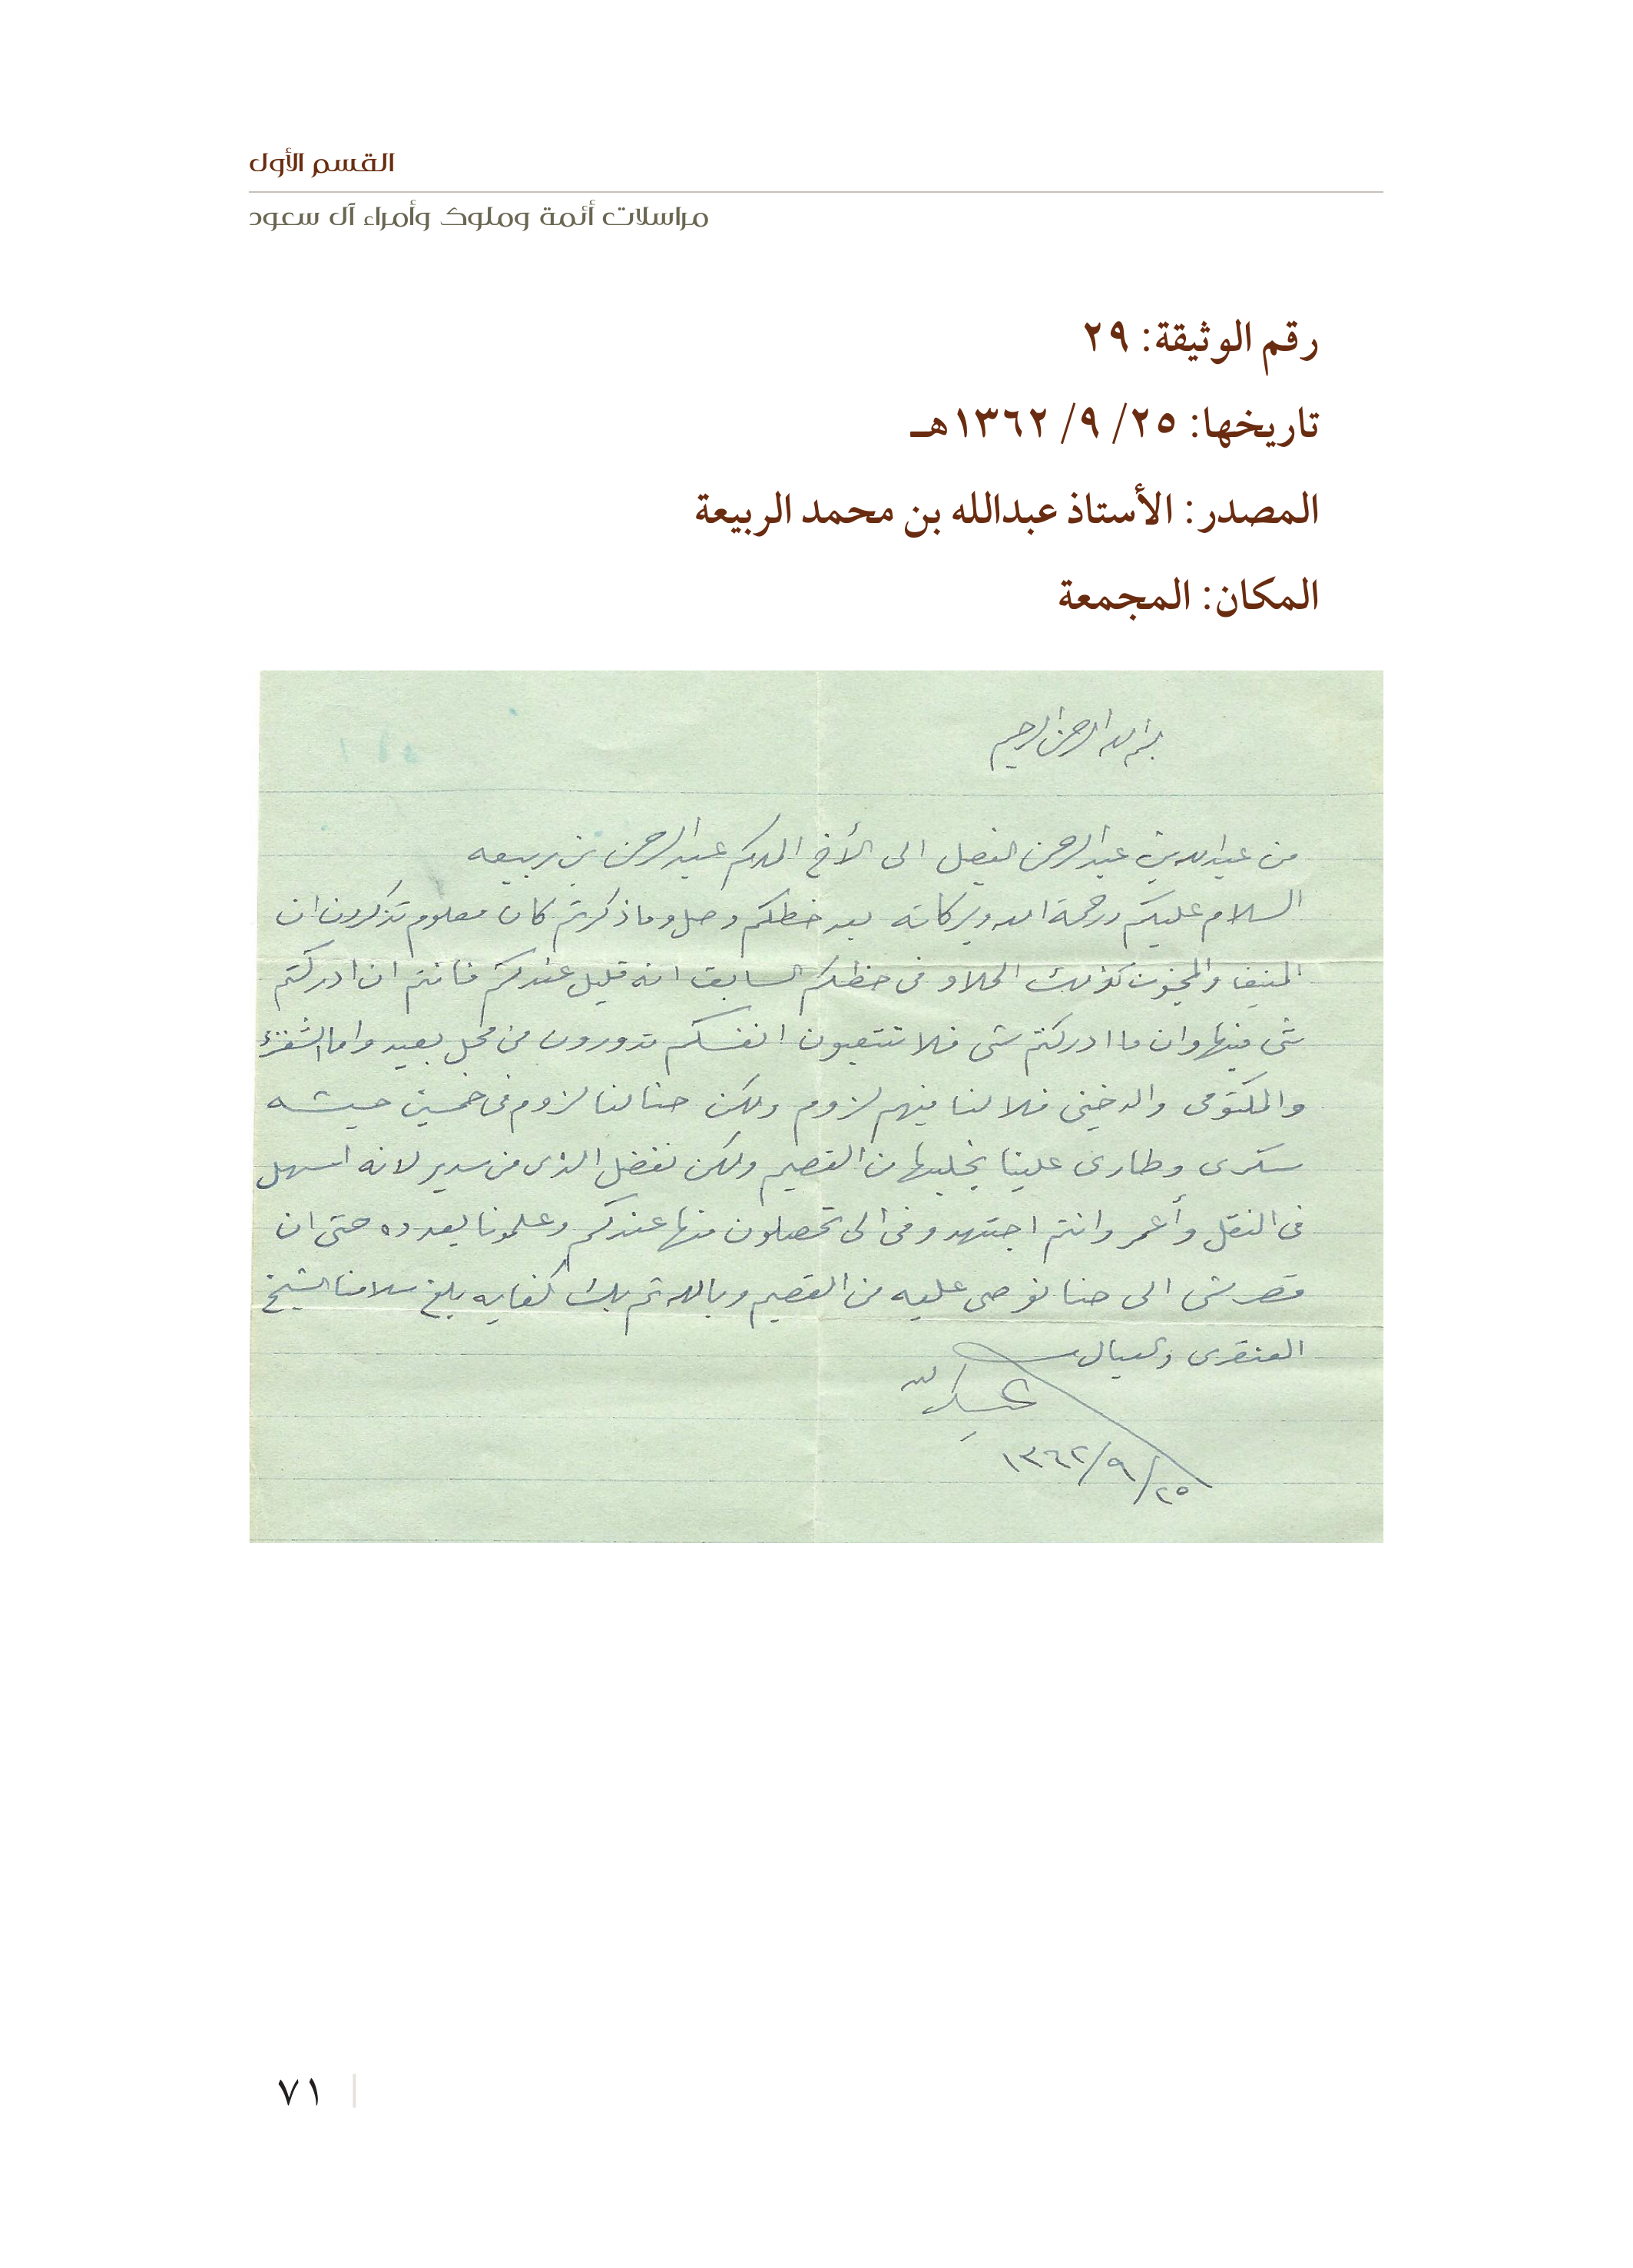 القسم الأول
مراسلات أئمة وملوك وأمراء آل سعود
رقم الوثيقة: ٢٩
تاريخها: ٢٥/ ٩/ ١٣٦٢هـ
المصدر: الأستاذ عبدالله بن محمد الربيعة
المكان: المجمعة
بسم الله الرحمن الرحيم
من عبدالله بن عبدالرحمن الفيصل الى الأخ المكرم عبدالرحمن بن ربيعه
السلام عليكم ورحمة الله وبركاته بعد خطكم وصل وما ذكرتم كان معلوم تذكرون ان
المنيفا والمجنونه كذلك الحلاو في خطكم السابق انه قليل عندكم فانتم ان ادركتم
شي فيها وان ما ادركتم شي فلا تتعبون انفسكم تدورون من محل بعيد واما الشقرا
والمكتومي والدخيني فلا لنا فيهم لزوم ولكن حنا لنا لزوم في خمسين حيشه
سكري وطاري علينا نجلبها من القصيم ولكن نفضل الذي من سدير لانه اسهل
في النقل وأعمر وانتم اجتهدو في الى تحصلون منها عندكم وعلمونا بعدده حتى ان
قصر شي الى حنا نوصي عليه من القصيم وبالله ثم بك كفايه بلغ سلامنا الشيخ
العنقري والعيال
عبدالله
٢٥/٩/١٣٦٢
٧١